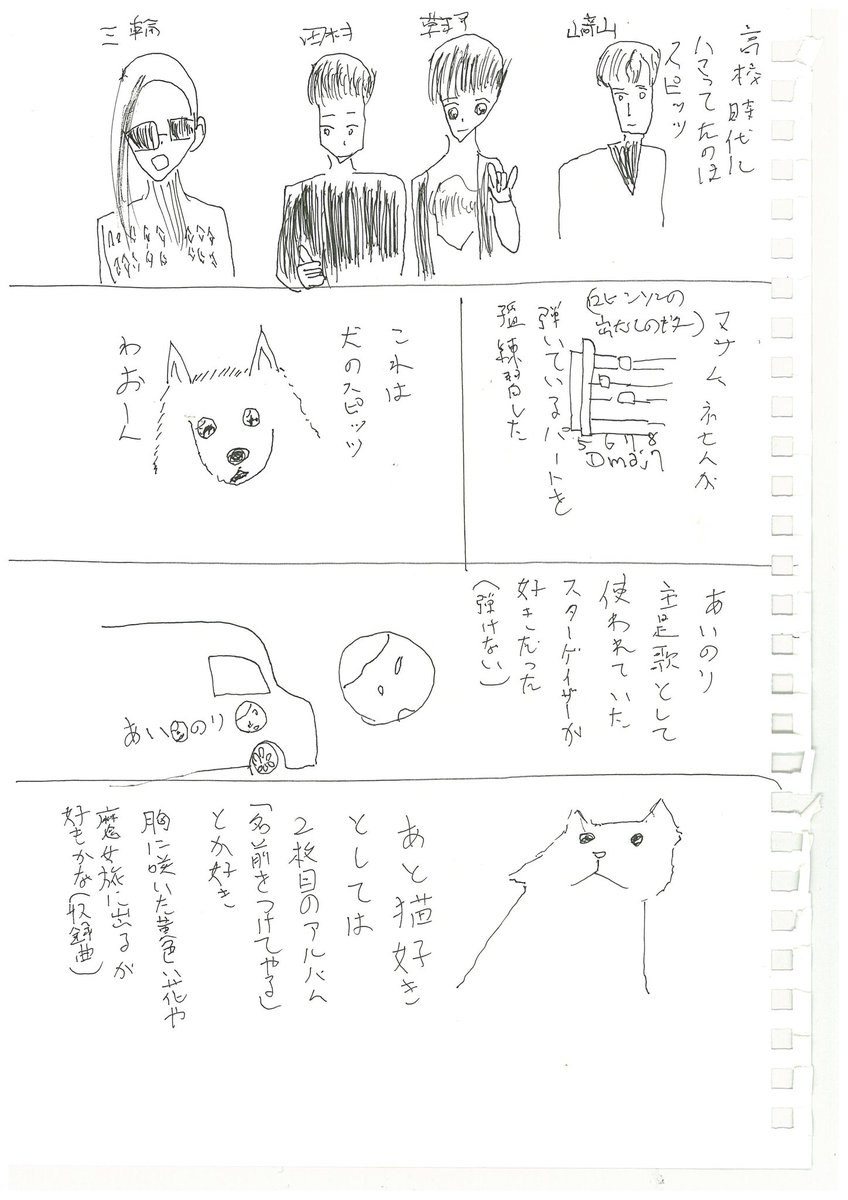 高校時代に
ハマってたのは
スピッツ
崎山
草野
田村
三輪
マサムネさんが
(ロビンソンの
出だしのギター)
5 6 7 8
Dmaj7
弾いているパートを
猛練習した
これは
犬のスピッツ
わおーん
あいのり
主題歌として
使われていた
スターゲイザーが
好きだった
(弾けない)
あいのり
あと猫好き
としては
2枚目のアルバム
「名前をつけてやる」
とか好き
胸に咲いた黄色い花や
魔女旅に出るが
好もかな(収録曲)